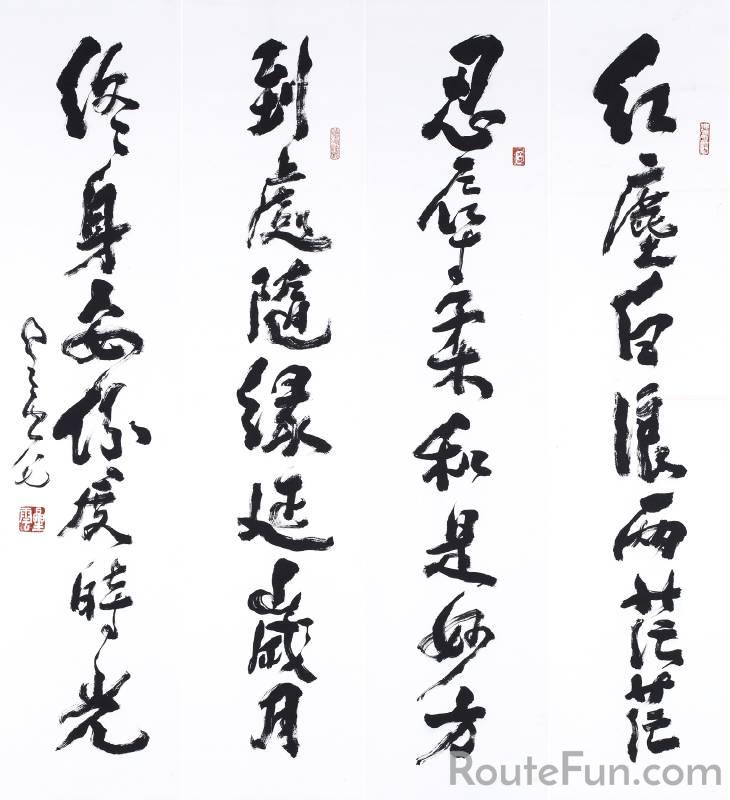 紅塵白浪兩茫茫
忍辱柔和是妙方
到處隨緣延歲月
終身安份度時光
RouteFun.com